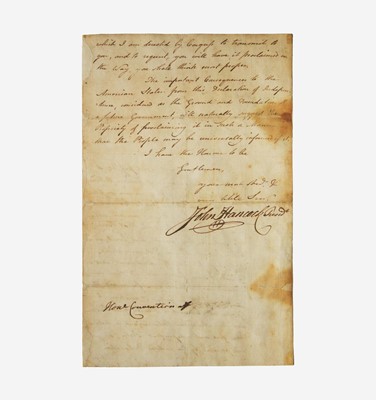 which I am directed by Congress to transmit to
you, and to request, you will have it proclaimed in
the Way, you shall think most proper.
The important Consequences to the
American States from this Declaration of
considered as the Ground and Foundation
a future Government, will naturally suggest the
Propriety of proclaiming it in such a
that the People may be universally informed of it
I have the Honour to be
Gentlemen
your most Obed. &
very hble Ser
John Hancock Presid
Honble Convention of